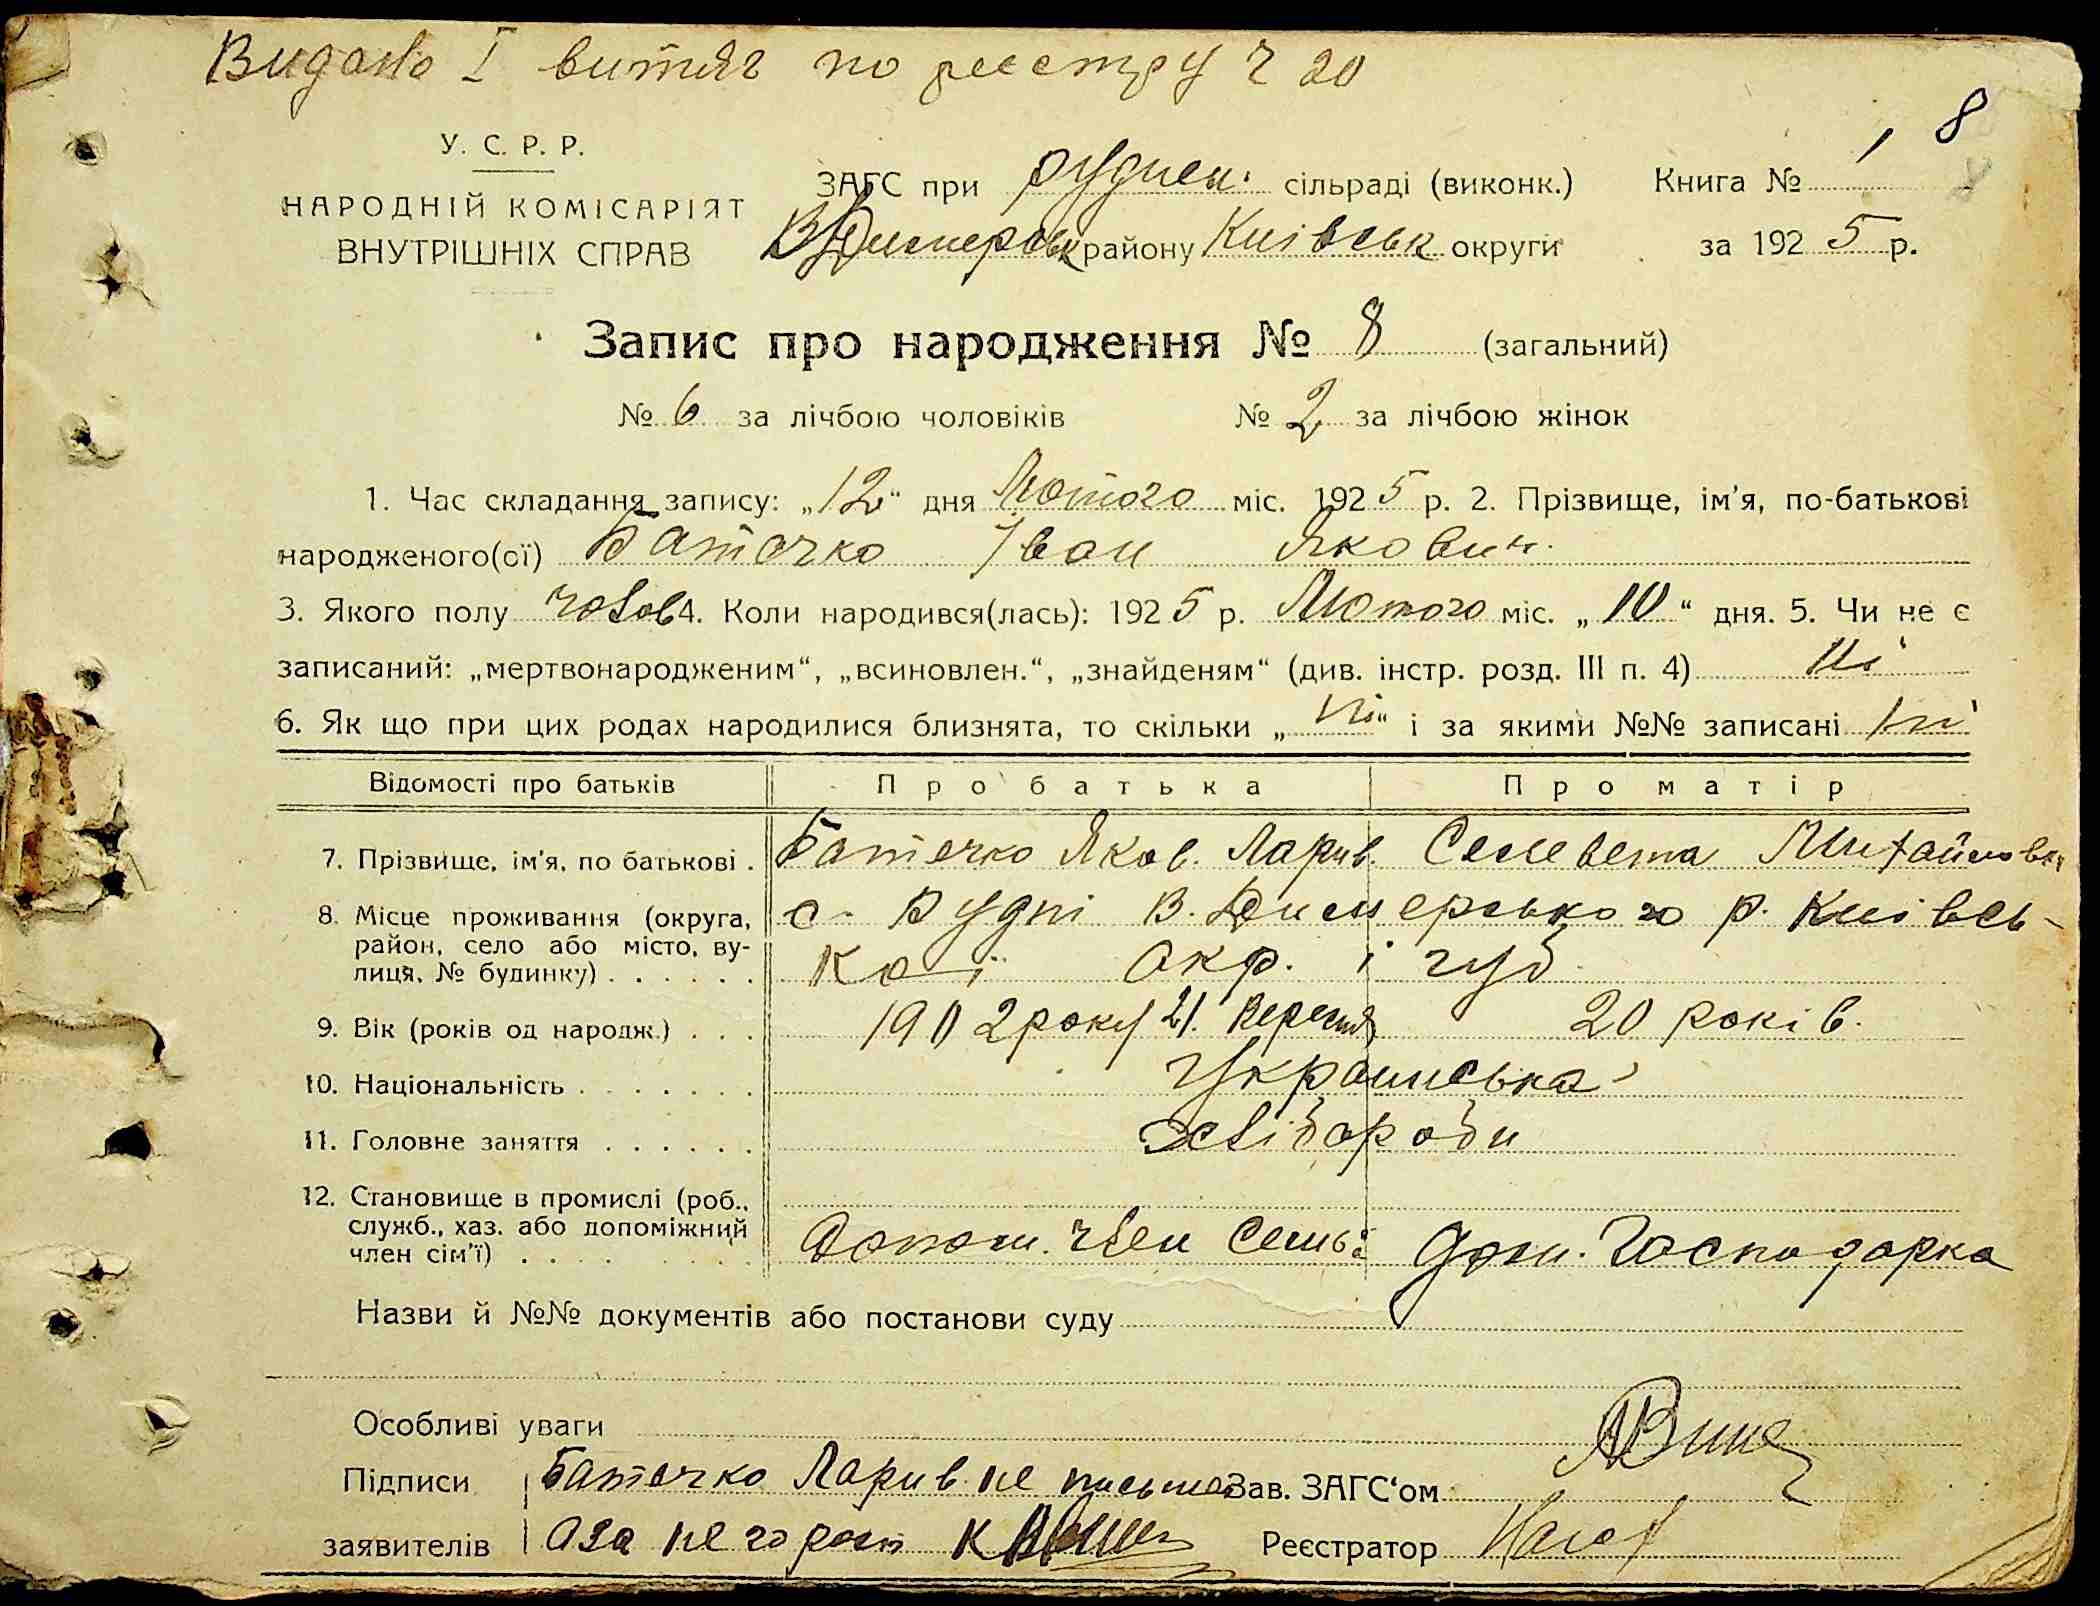 Видано I витяг по реєстру Ч 20
8
У. С. Р. Р.
НАРОДНІЙ КОМІСАРІЯТ
ВНУТРІШНІХ СПРАВ
ЗАГС при Руднен. сільраді (виконк.) Книга № 1
В Димерськ району Київськ округи за 1925 р.
Запис про народження № 8 (загальний)
№ 6 за лічбою чоловіків № 2 за лічбою жінок
1. Час складання запису: „12“ дня Лютого міс. 1925 р. 2. Прізвище, ім'я, по-батькові
народженого(ої) Батечко Іван Якович.
3. Якого полу чолов 4. Коли народився(лась): 1925 р. Лютого міс. „10“ дня. 5. Чи не є
записаний: „мертвонародженим“, „всиновлен.“, „знайденям“ (див. інстр. розд. III п. 4) ні
6. Як що при цих родах народилися близнята, то скільки „ні“ і за якими №№ записані ні
Відомості про батьків Про батька Про матір
7. Прізвище, ім'я, по батькові . Батечко Яков. Ларив. Селевета Михайловна
8. Місце проживання (округа, район, село або місто, вулиця, № будинку) . . . . . . с. Рудні В. Димерського р. Київсь-
кої окр. і губ.
9. Вік (років од народж.) . . . 1902 року 21. Вересня 20 років.
10. Національність . . . . . . . Украинська
11. Головне заняття . . . . . . хліборобы
12. Становище в промислі (роб.,
служб., хаз. або допоміжний
член сім'ї) . . . . . . . . Допом. член семьі дом. Господарка
Назви й №№ документів або постанови суду
Особливі уваги
Підписи Батечко Ларив не письмен Зав. ЗАГС'ом
заявителів а за него росп Реєстратор